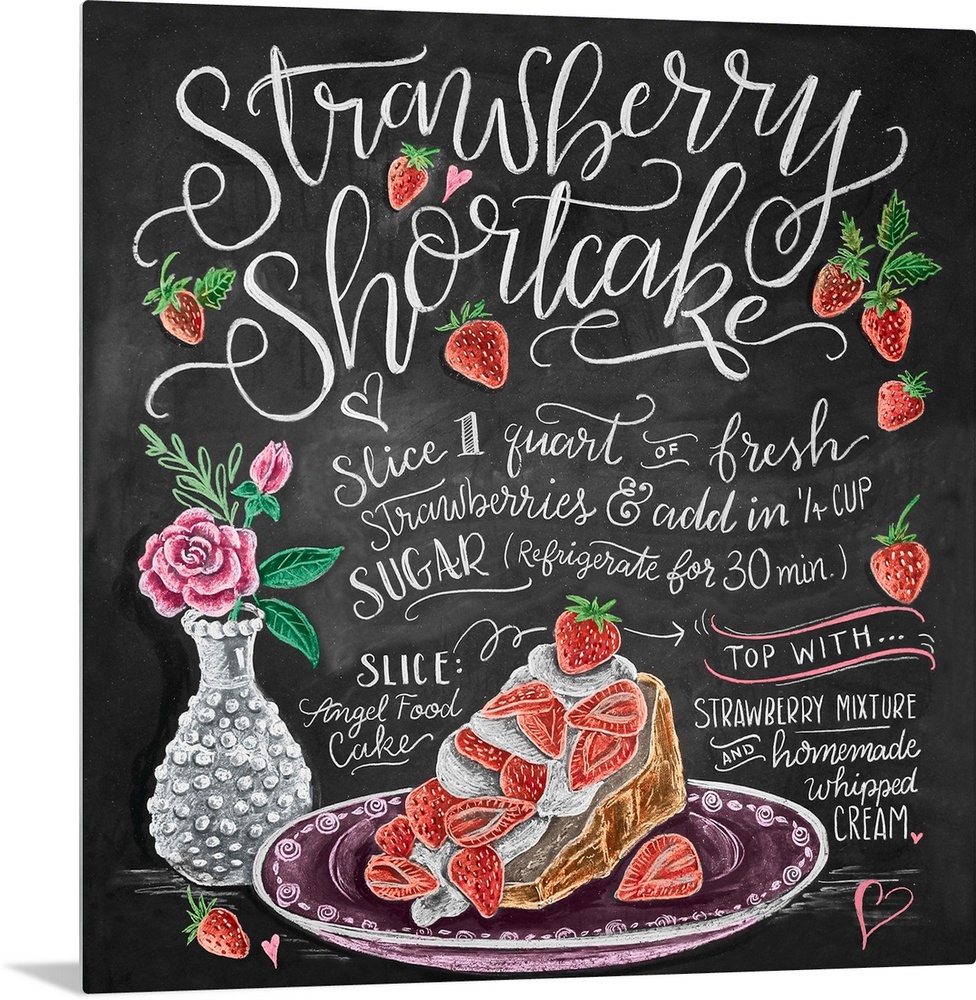 Strawberry
Shortcake
Slice 1 quart OF fresh
STRAWBERRIES & add in 1/4 CUP
SUGAR (Refrigerate for 30 min.)
SLICE:
Angel Food
Cake
TOP WITH...
STRAWBERRY MIXTURE
AND homemade
whipped
CREAM